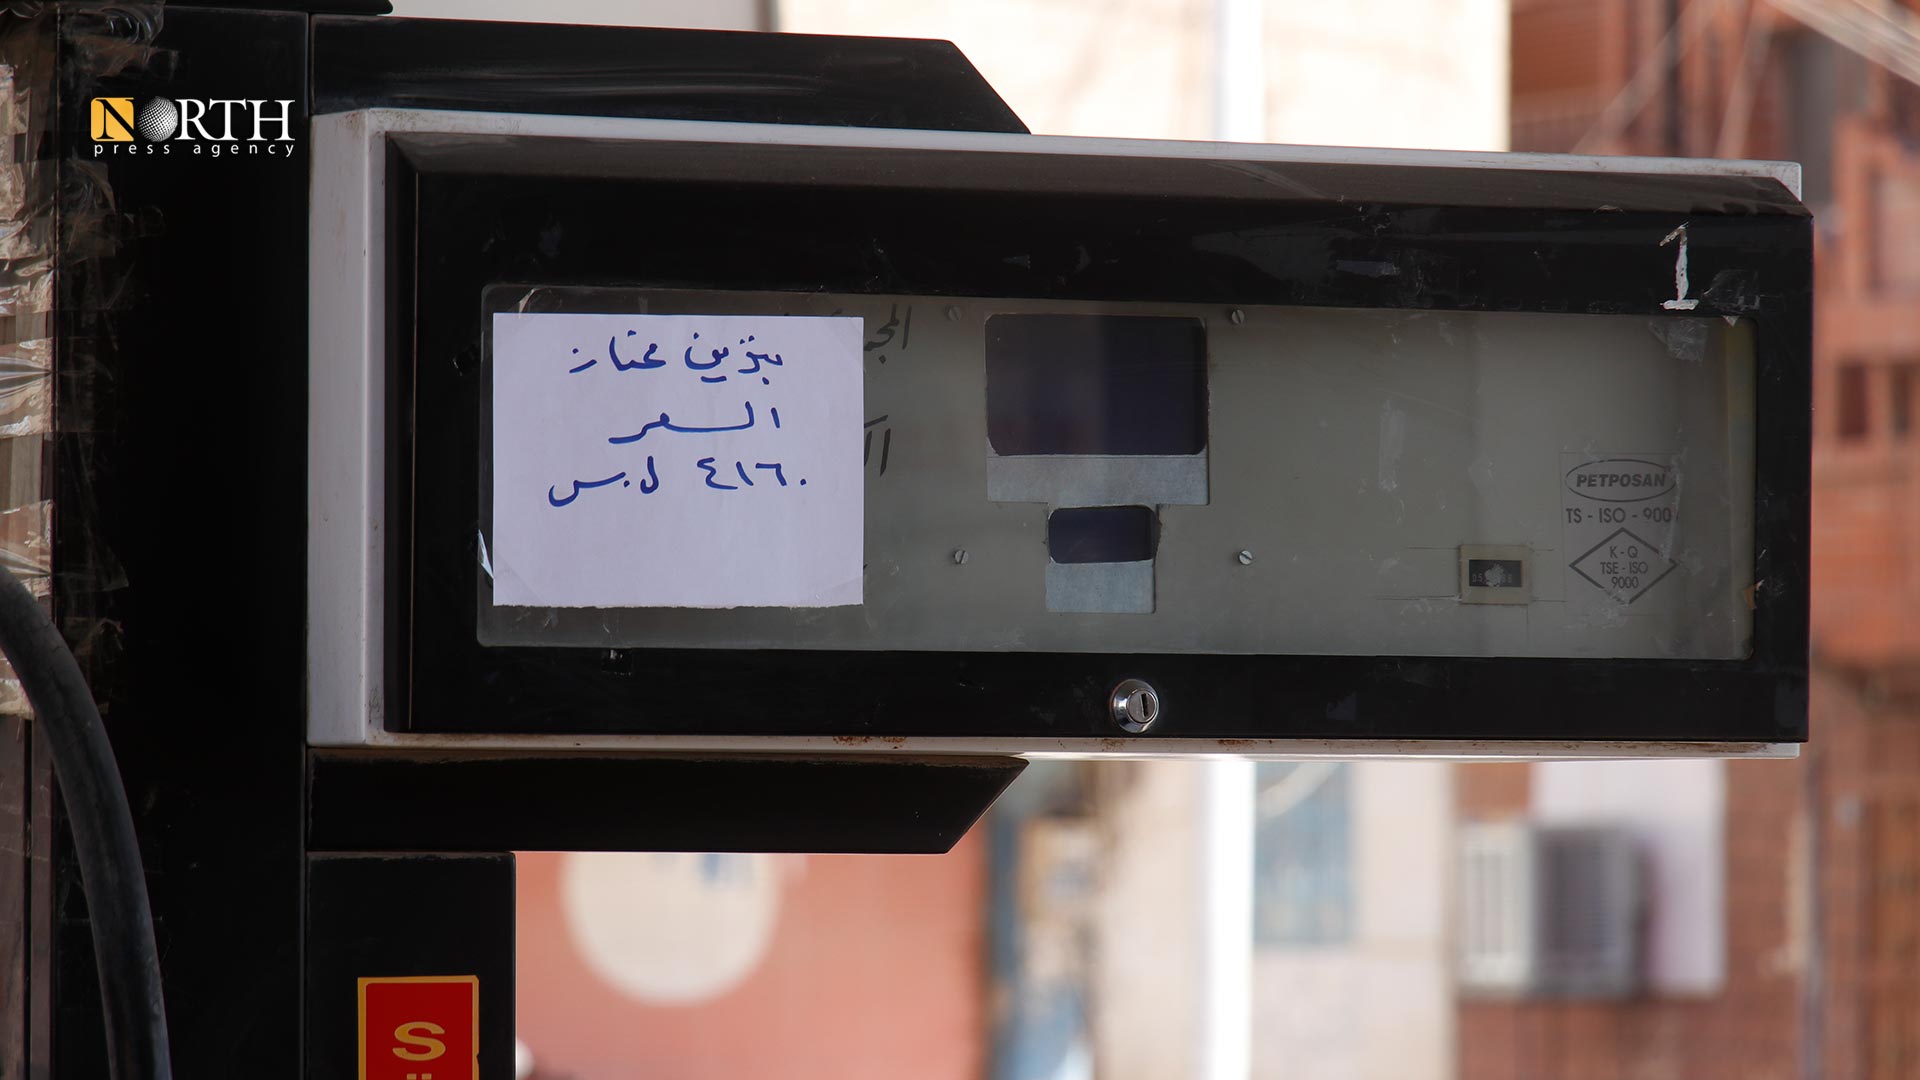 NORTH
press agency
1
بنزين ممتاز
السعر
٤١٦٠ ل.س
PETPOSAN
TS - ISO - 900
K - Q
TSE - ISO
9000
S